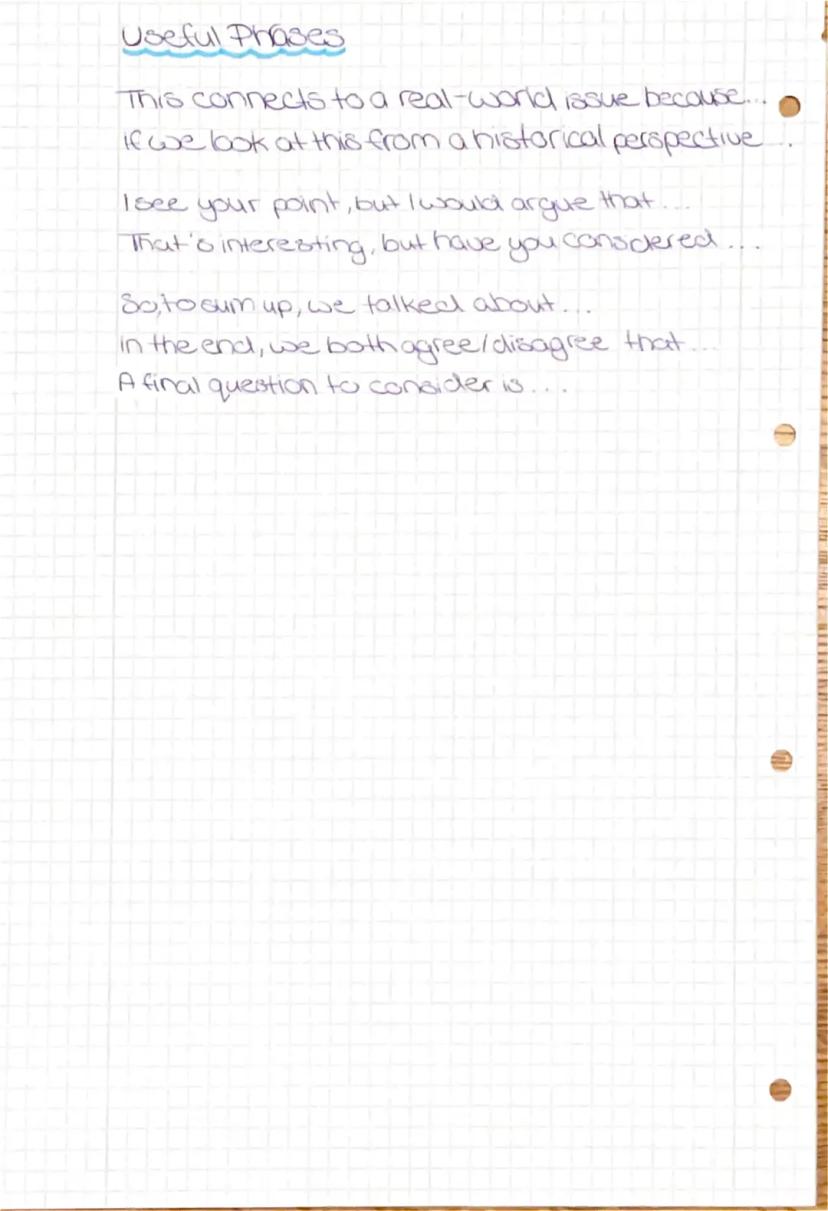 Useful Phases
This connects to a real-world issue because...
If we look at this from a historical perspective ..
I see your point, but I would argue that...
That's interesting, but have you considered...
So, to sum up, we talked about...
In the end, we both agree/disagree that...
A final question to consider is...